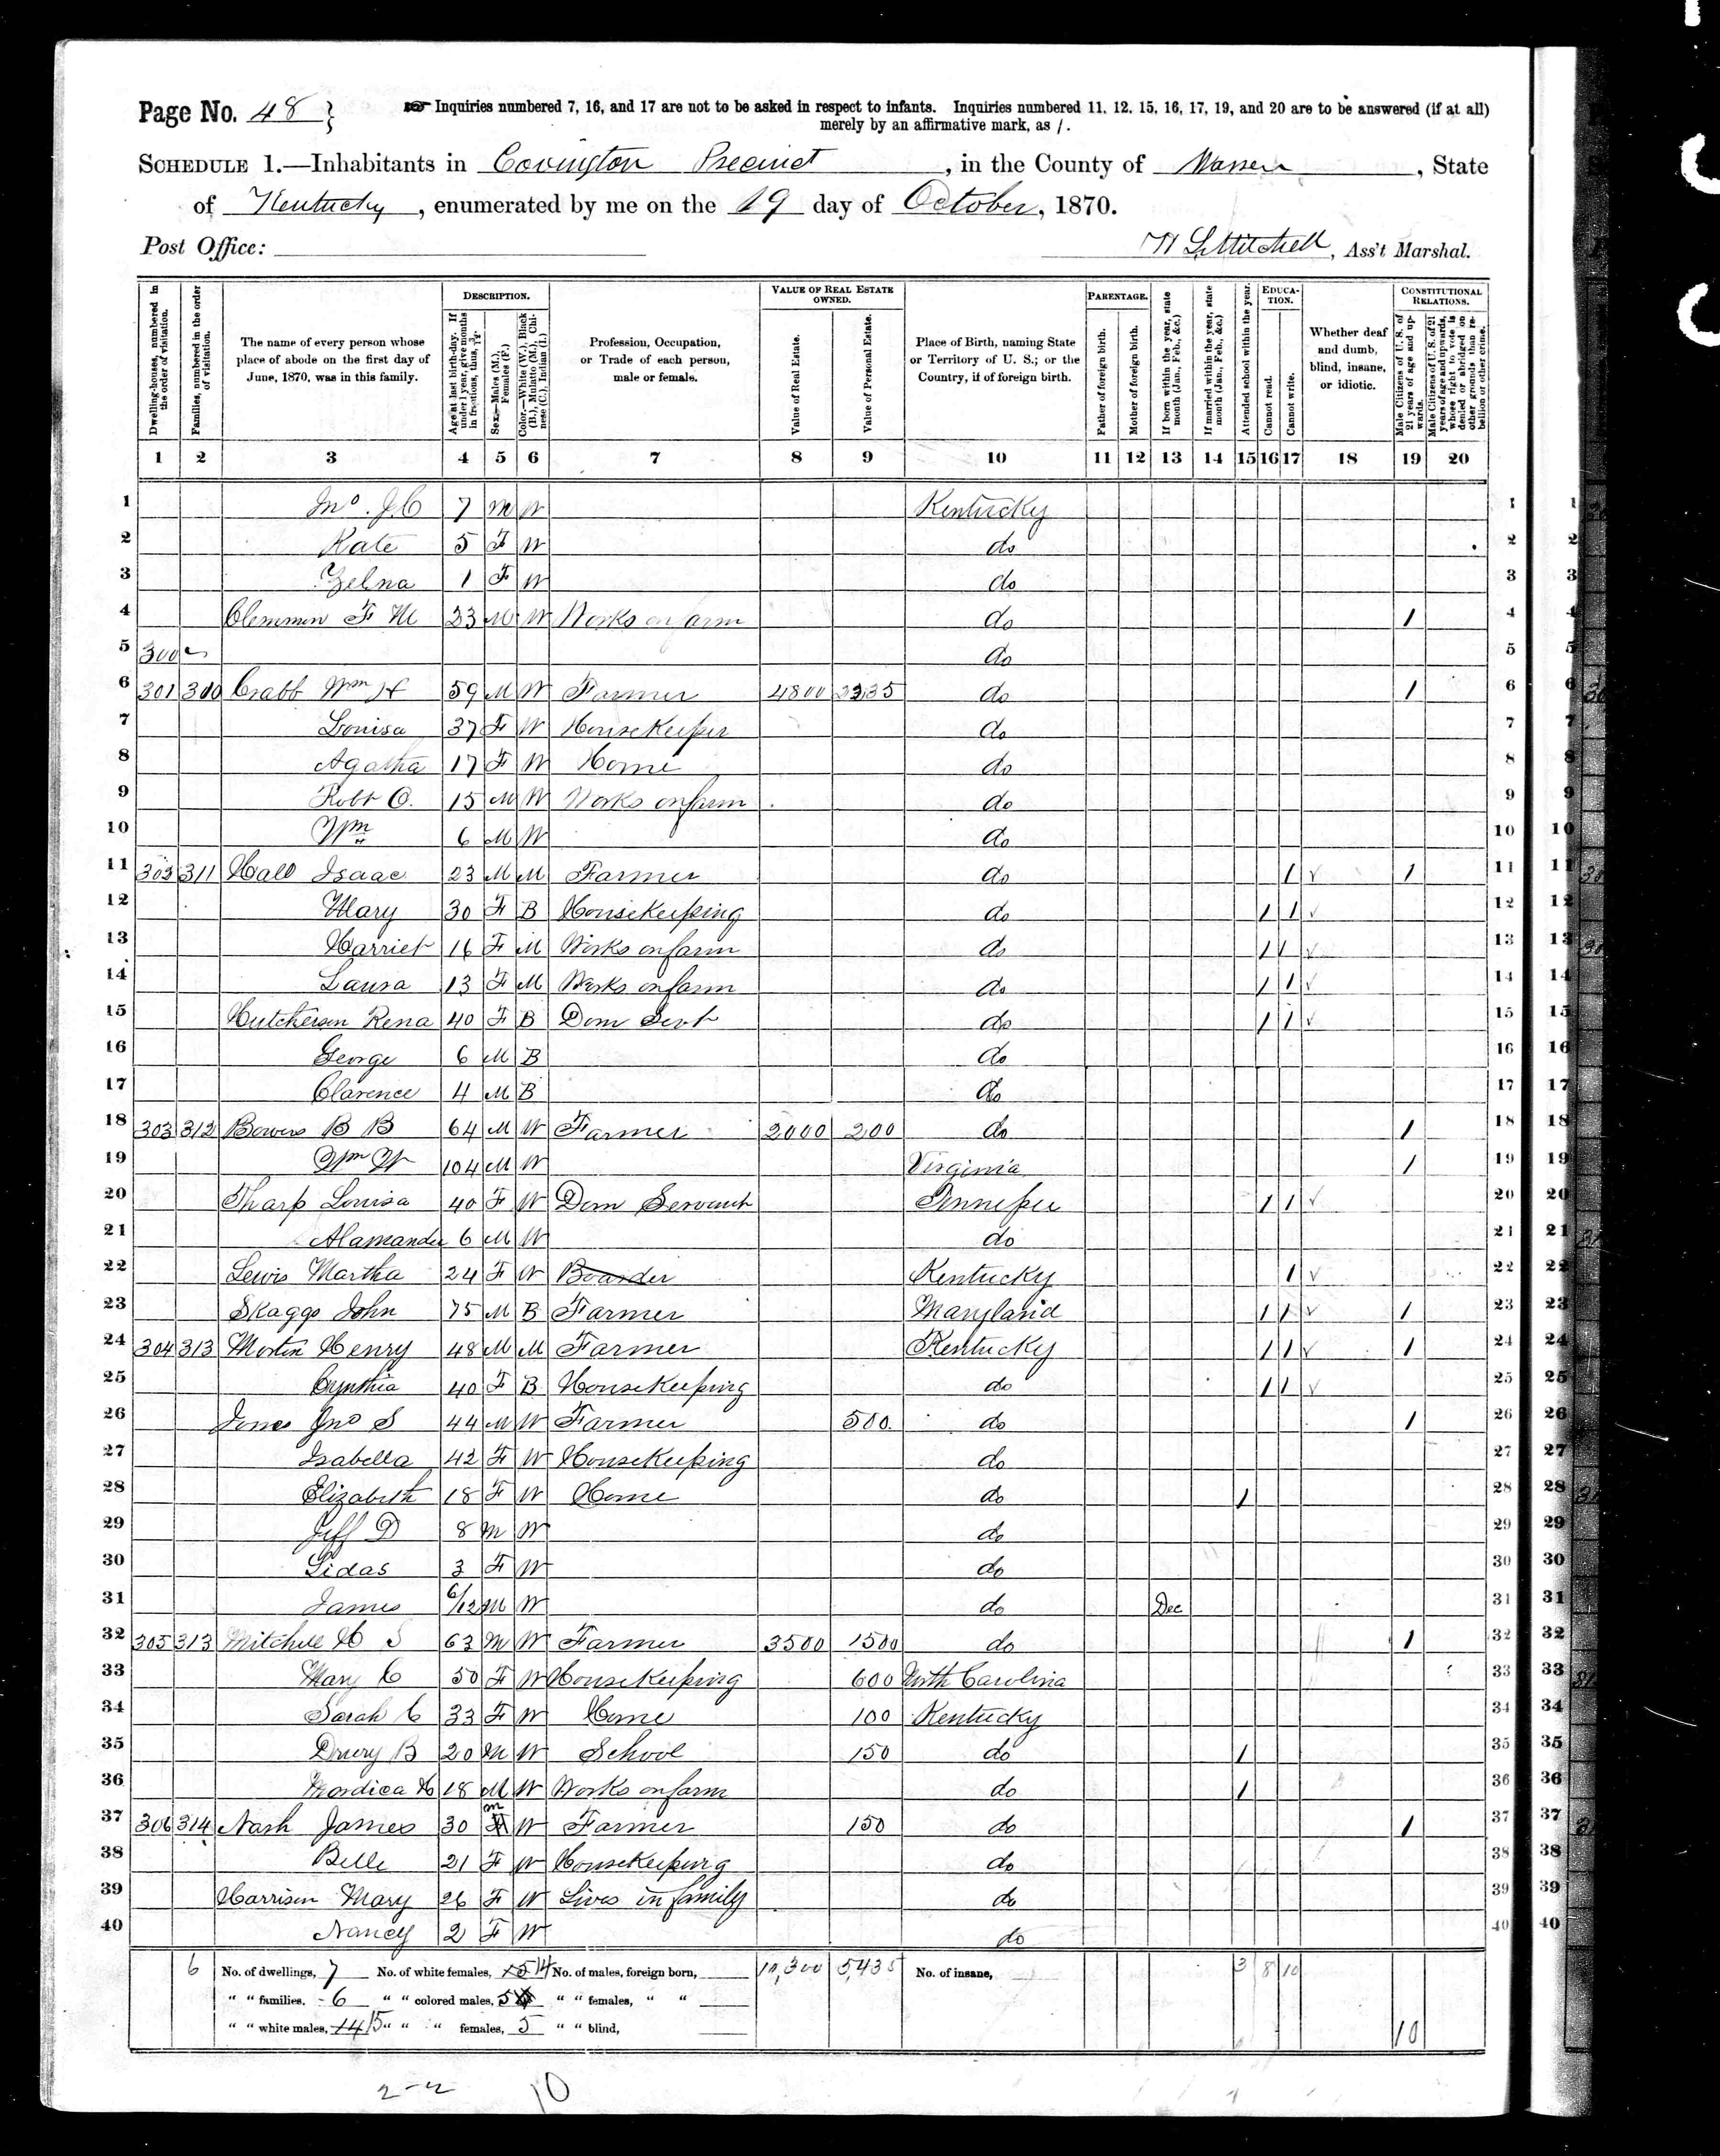 Page No. 48
Inquiries numbered 7, 16, and 17 are not to be asked in respect to infants. Inquiries numbered 11, 12, 15, 16, 17, 19, and 20 are to be answered (if at all)
merely by an affirmative mark, as /.
SCHEDULE 1.—Inhabitants in Covington Precinct, in the County of Warren, State
of Kentucky, enumerated by me on the 19 day of October, 1870.
Post Office:
Mitchell, Ass't Marshal.
Dwelling-houses, numbered in the order of visitation.
Families, numbered in the order of visitation.
The name of every person whose place of abode on the first day of June, 1870, was in this family.
DESCRIPTION.
Age at last birth-day. If under 1 year, give months in fractions, thus, 3/12
Sex.—Males (M.), Females (F.)
Color.—White (W.), Black (B.), Mulatto (M.), Chinese (C.), Indian (I.)
Profession, Occupation, or Trade of each person, male or female.
VALUE OF REAL ESTATE OWNED.
Value of Real Estate.
Value of Personal Estate.
Place of Birth, naming State or Territory of U. S.; or the Country, if of foreign birth.
PARENTAGE.
Father of foreign birth.
Mother of foreign birth.
If born within the year, state month (Jan., Feb., &c.)
If married within the year, state month (Jan., Feb., &c.)
Attended school within the year.
EDUCATION.
Cannot read.
Cannot write.
Whether deaf and dumb, blind, insane, or idiotic.
CONSTITUTIONAL RELATIONS.
Male Citizens of U. S. of 21 years of age and upwards.
Male Citizens of U. S. of 21 years of age and upwards, whose right to vote is denied or abridged on other grounds than rebellion or other crime.
1 2 3 4 5 6 7 8 9 10 11 12 13 14 15 16 17 18 19 20
1 Jno. J.C 7 M W Kentucky 1
2 Kate 5 F W do 2
3 Zelna 1 F W do 3
4 F M 23 M W Works on farm do / 4
5 300 do 5
6 301 310 Crabb Wm H 59 M W Farmer 4800 do / 6
7 Louisa 37 F W HouseKeeper do 7
8 Agatha 17 F W Home do 8
9 Robt O. 15 M W Works on farm do 9
10 Wm 6 M W do 10
11 302 311 Hall Isaac 23 M M Farmer do / ✓ / 11
12 Mary 30 F B HouseKeeping do / / ✓ 12
13 Harriet 16 F M Works on farm do / / ✓ 13
14 Laura 13 F M Works on farm do / / ✓ 14
15 Hutcherson Rena 40 F B Dom Servt do / / ✓ 15
16 George 6 M B do 16
17 Clarence 4 M B do 17
18 303 312 Bowers B B 64 M W Farmer 2000 200 do / 18
19 Wm W 104 M W Virginia / 19
20 Tharp Louisa 40 F W Dom Servant Tennessee / / ✓ 20
21 Alamander 6 M W do 21
22 Lewis Martha 24 F W Boarder Kentucky / ✓ 22
23 Skaggs John 75 M B Farmer Maryland / / ✓ / 23
24 304 313 Henry 48 M M Farmer Kentucky / / ✓ / 24
25 Cynthia 40 F B HouseKeeping do / / ✓ 25
26 Jones Jno S 44 M W Farmer 500 do / 26
27 Isabella 42 F W HouseKeeping do 27
28 Elizabeth 18 F W Home do / 28
29 Jeff D 8 M W do 29
30 Lidas 3 F W do 30
31 James 6/12 M W do Dec 31
32 305 313 Mitchell H S 63 M W Farmer 3500 1500 do / 32
33 Mary C 50 F W HouseKeeping 600 North Carolina 33
34 Sarah C 33 F W Home 100 Kentucky 34
35 Drury B 20 M W School 150 do / 35
36 Mordica H 18 M W Works on farm do / 36
37 306 314 Nash James 30 M W Farmer 150 do / 37
38 Belle 21 F W HouseKeeping do 38
39 Harrison Mary 26 F W Lives in family do 39
40 Nancy 2 F W do 40
6 No. of dwellings, 7 No. of white females, 15 14 No. of males, foreign born, 10,300 5,435 No. of insane, 3 8 10
" " families, 6 " " colored males, 5 " " females, " "
" " white males, 14 15 " " " females, 5 " " blind, 10
2-2 10